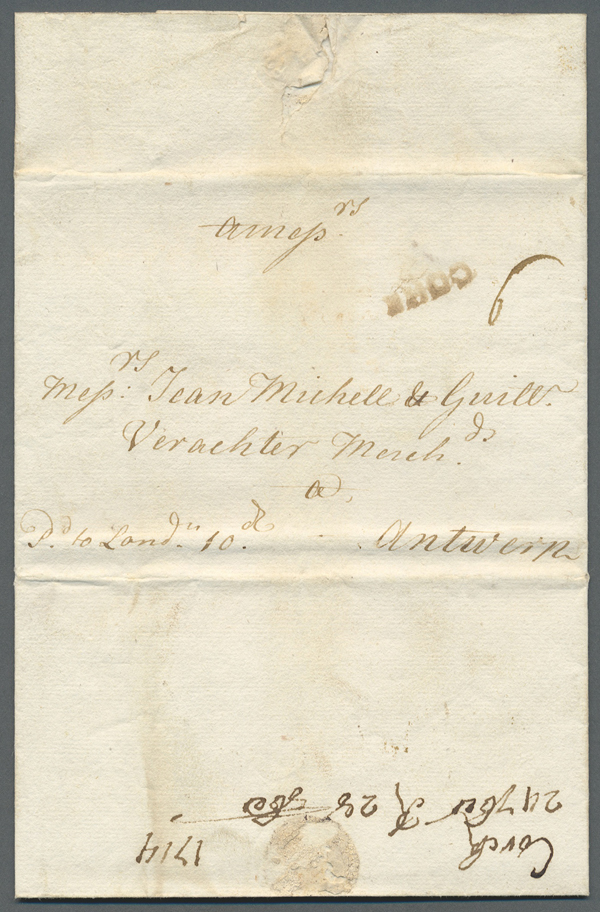 a Messrs
CORK
6
Messrs: Jean Michell & Guill.
Verachter Merchds.
a
Pd to Londn 10d Antwerp
Corck
24 R 28
1714